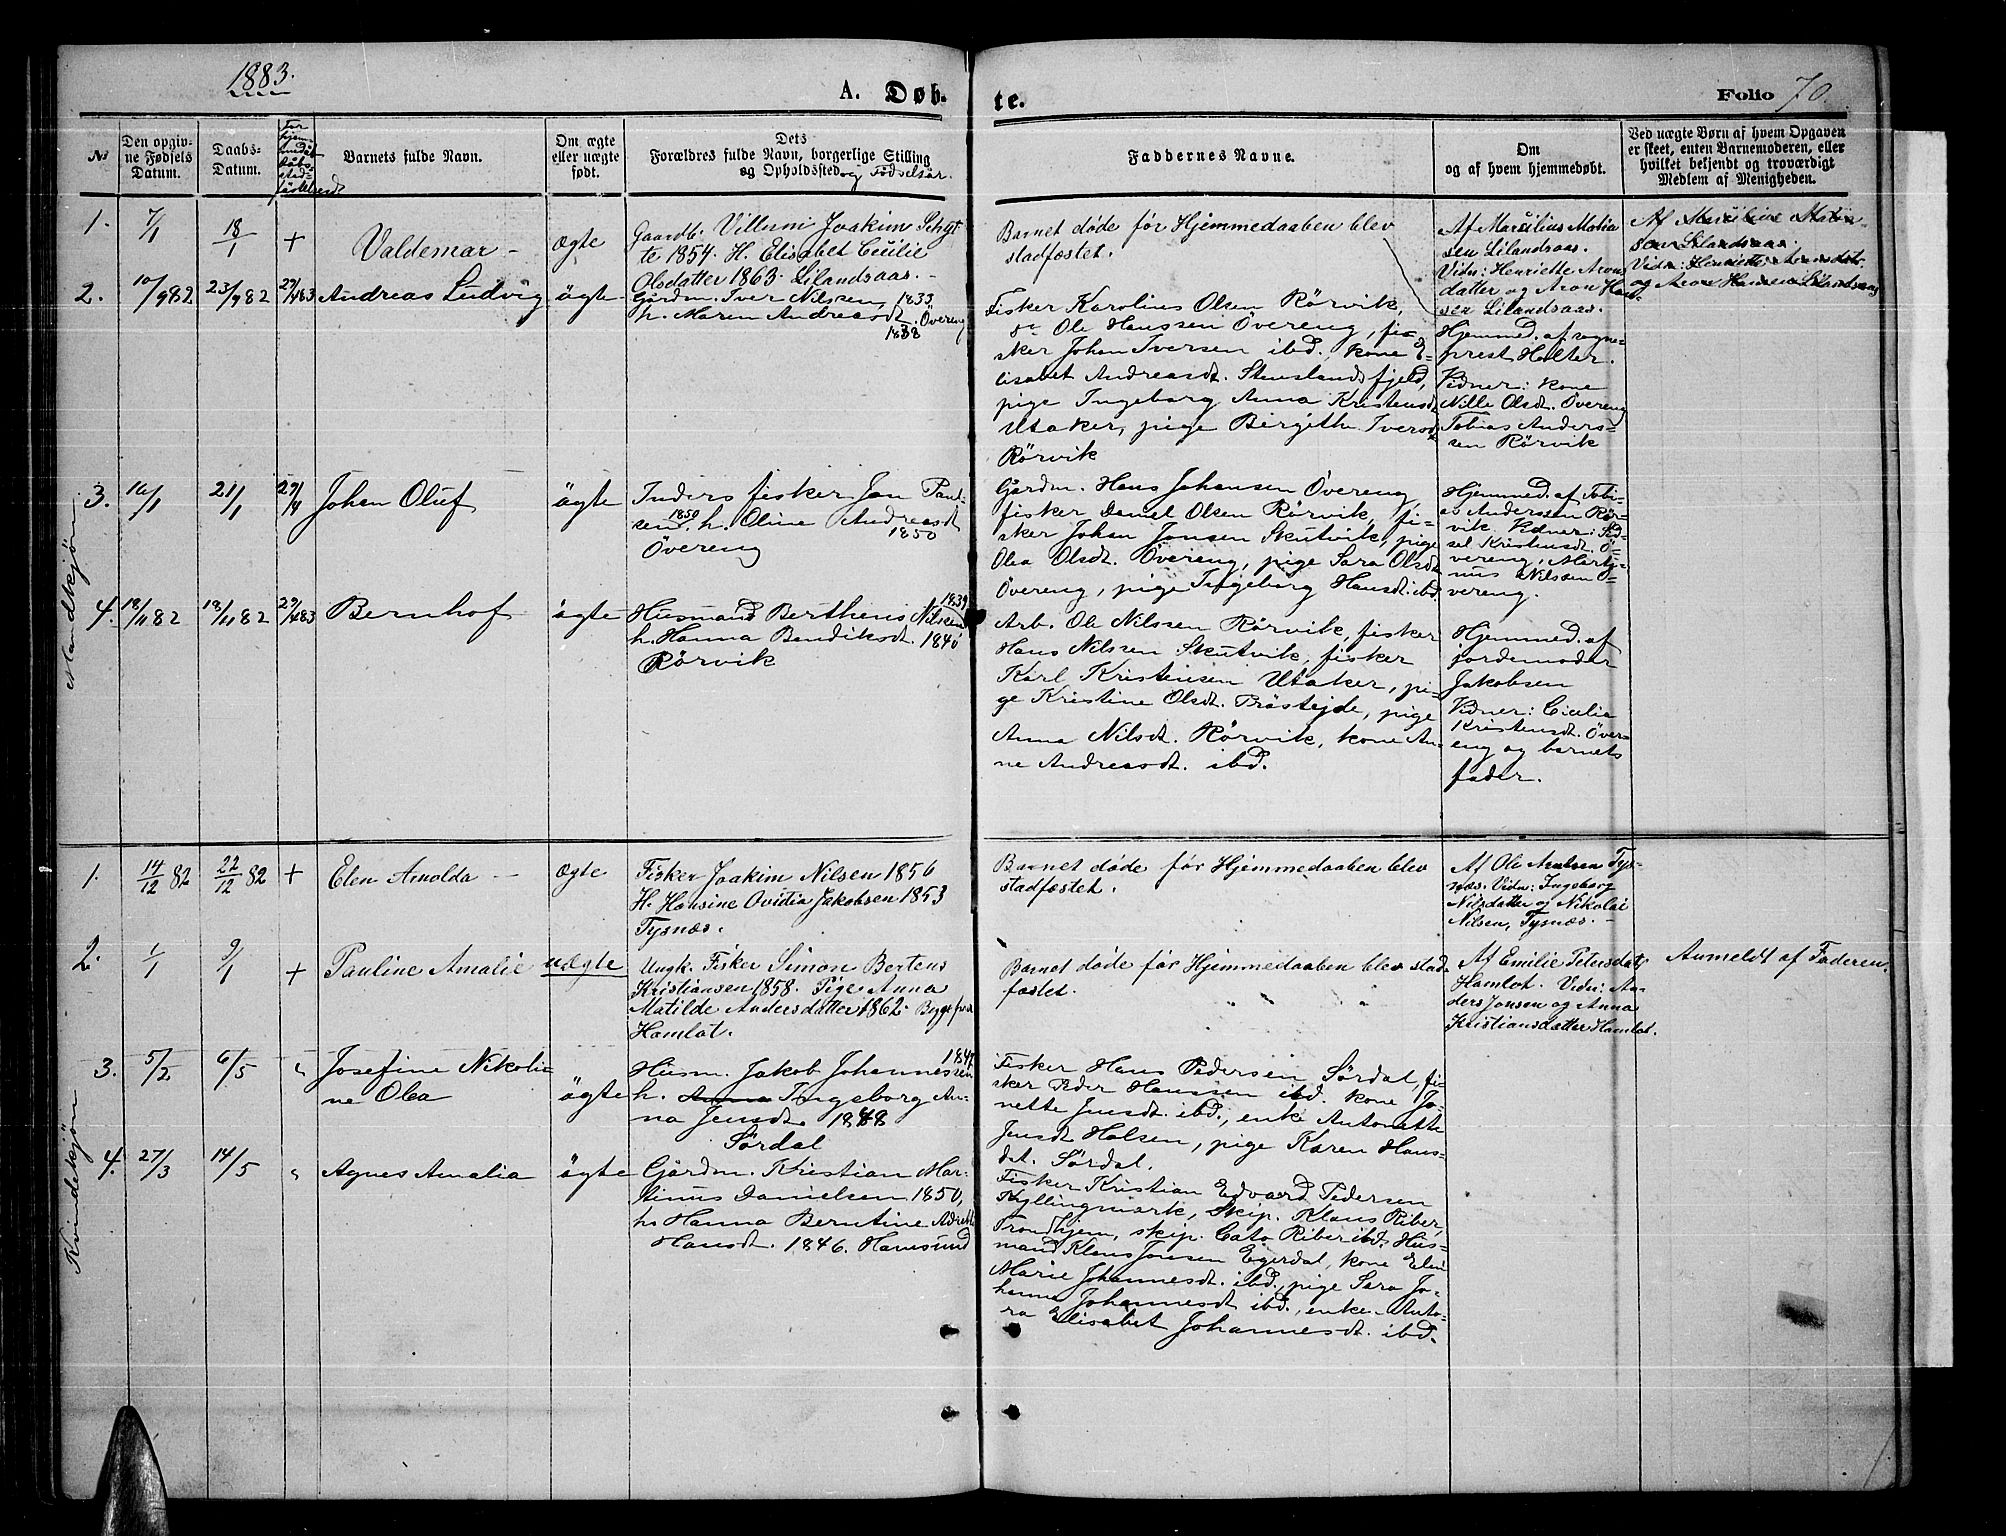 1883.
A. Døb-
te.
Folio 70.
№
Den opgiv-
ne Fødsels
Datum.
Daabs-
Datum.
Barnets fulde Navn.
Om ægte
eller uægte
født.
Dets
Forældres fulde Navn, borgerlige Stilling
og Opholdssted og Fødselsår.
Faddernes Navne.
Om
og af hvem hjemmedøbt.
Ved uægte Børn af hvem Opgaven
er skeet, enten Barnemoderen, eller
hvilket bekjendt og troværdigt
Medlem af Menigheden.
Mandkjøn
1.
7/1
18/1
+
Valdemar -
Ægte
Gaardb. Villumi Joakim Schyt-
te 1854. H. Elisabet Cecilie
Olsdatter 1863. Lilandsaas. -
Barnet døde før Hjemmedaaben blev
stadfæstet.
Af Marsilius Matia
sen Lilandsaas.
Vidn: Henriette Arons
datter og Aron Han-
sen Lilandsaas.
Af Marsilius Matia
sen Lilandsaas.
Vidn: Henriette Aronsdat.
og Aron Hansen Lilandsaas
2.
10/9 82
23/9 82
29/4 83
Andreas Ludvig
ägte
Gårdm. Iver Nilsen 1833,
h. Maren Andreasdt. Övereng
1838
Fisker Karolius Olsen Rörvik,
do Ole Hanssen Övereng, fi-
sker Johan Iversen ibd. kone E-
lisabet Andreasdt. Stenslandsfjeld,
pige Ingeborg Anna Kristensdt
Utaker, pige Birgith Iversdt
Rörvik
Hjemmed. af sogne-
prest Holter.
Vidner: kone
Nille Olsdt. Övereng
Tobias Anders-
sen Rörvik
3.
16/1
21/1
29/4
Johan Oluf
ägte
Inders fisker Jon Paul-
sen 1850 h. Oline Andreasdt
1850
Övereng
Gårdm. Hans Johansen Övereng,
fisker Daniel Olsen Rörvik, fi-
sker Johan Jonsen Skutvik, pige
Olea Olsdt. Övereng, pige Sara Olsdt
Övereng, pige Ingeborg Hansdt. ibd.
Hjemmed. af Tobi-
as Anderssen Rör-
vik. Vidner: Sid-
sel Kristensdt. Ö-
vereng, Marti-
nus Nilssen Ö-
vereng.
4.
18/11 82
18/11 82
29/4 83
Bernhof
ägte
Husmand Bertheus Nilssen 1839
h. Hanna Bendiksdt. 1840
Rörvik
Arb. Ole Nilssen Rörvik, fisker
Hans Nilssen Skutvik, fisker
Karl Kristensen Utaker, pi-
ge Kristine Olsdt. Bråstejde, pige
Anna Nilsdt. Rörvik, kone An-
ne Andreasdt. ibd.
Hjemmed. af
jordemoder
Jakobsen
Vidner: Cicilia
Kristensdt. Över-
eng og barnets
fader.
Kvindekjön
1.
14/12 82
22/12 82
+
Elen Arnolda -
Ægte
Fisker Joakim Nilsen 1856
H. Hansine Ovidia Jakobsen 1853
Tysnæs.
Barnet døde før Hjemmedaaben blev
stadfæstet.
Af Ole Arntsen Tys-
næs. Vidn: Ingeborg
Nilsdatter og Nikolai
Nilsen, Tysnæs. -
2.
1/1
9/1
+
Pauline Amalie
uægte
Ungk. Fisker Simon Bertens
Kristiansen 1858. Pige Anna
Matilde Andersdatter 1862. Begge fra
Hamlot.
Barnet døde før Hjemmedaaben blev stad
fæstet.
Af Emilie Petersdat,
Hamlot. Vidn: An-
ders Jonsen og Anna
Kristiansdatter Hamlot.
Anmeldt af Faderen.
3.
5/2
6/5
"
Josefine Nikoli-
ne Olea
ägte
Husm. Jakob Johannessen
h. Anna Ingeborg An-
na Jensdt. 1848
Sördal
Fisker Hans Pedersen Sördal, fi-
sker Peder Hanssen ibd. kone Jo-
nette Jensdt. ibd., enke Antonette
Jensdt Holsen, pige Karen Hans-
dat. Sördal.
4.
27/3
14/5
"
Agnes Amalia
ägte
Gjårdm. Kristian Mar-
tinus Danielsen 1850,
h. Hanna Berntine
Hansdt. 1846.
Fisker Kristian Edvard Pedersen
Kyllingmark, skip. Klaus Riber,
Trondhjem, skip. Cato Riber ibd. Hus-
mand Klaus Jonsen Egerdal, kone Elen
Marie Johannesdt. ibd., pige Sara Jo-
hanna Johannesdt ibd., enke Anto-
ra Elisabet Johannesdt. ibd.